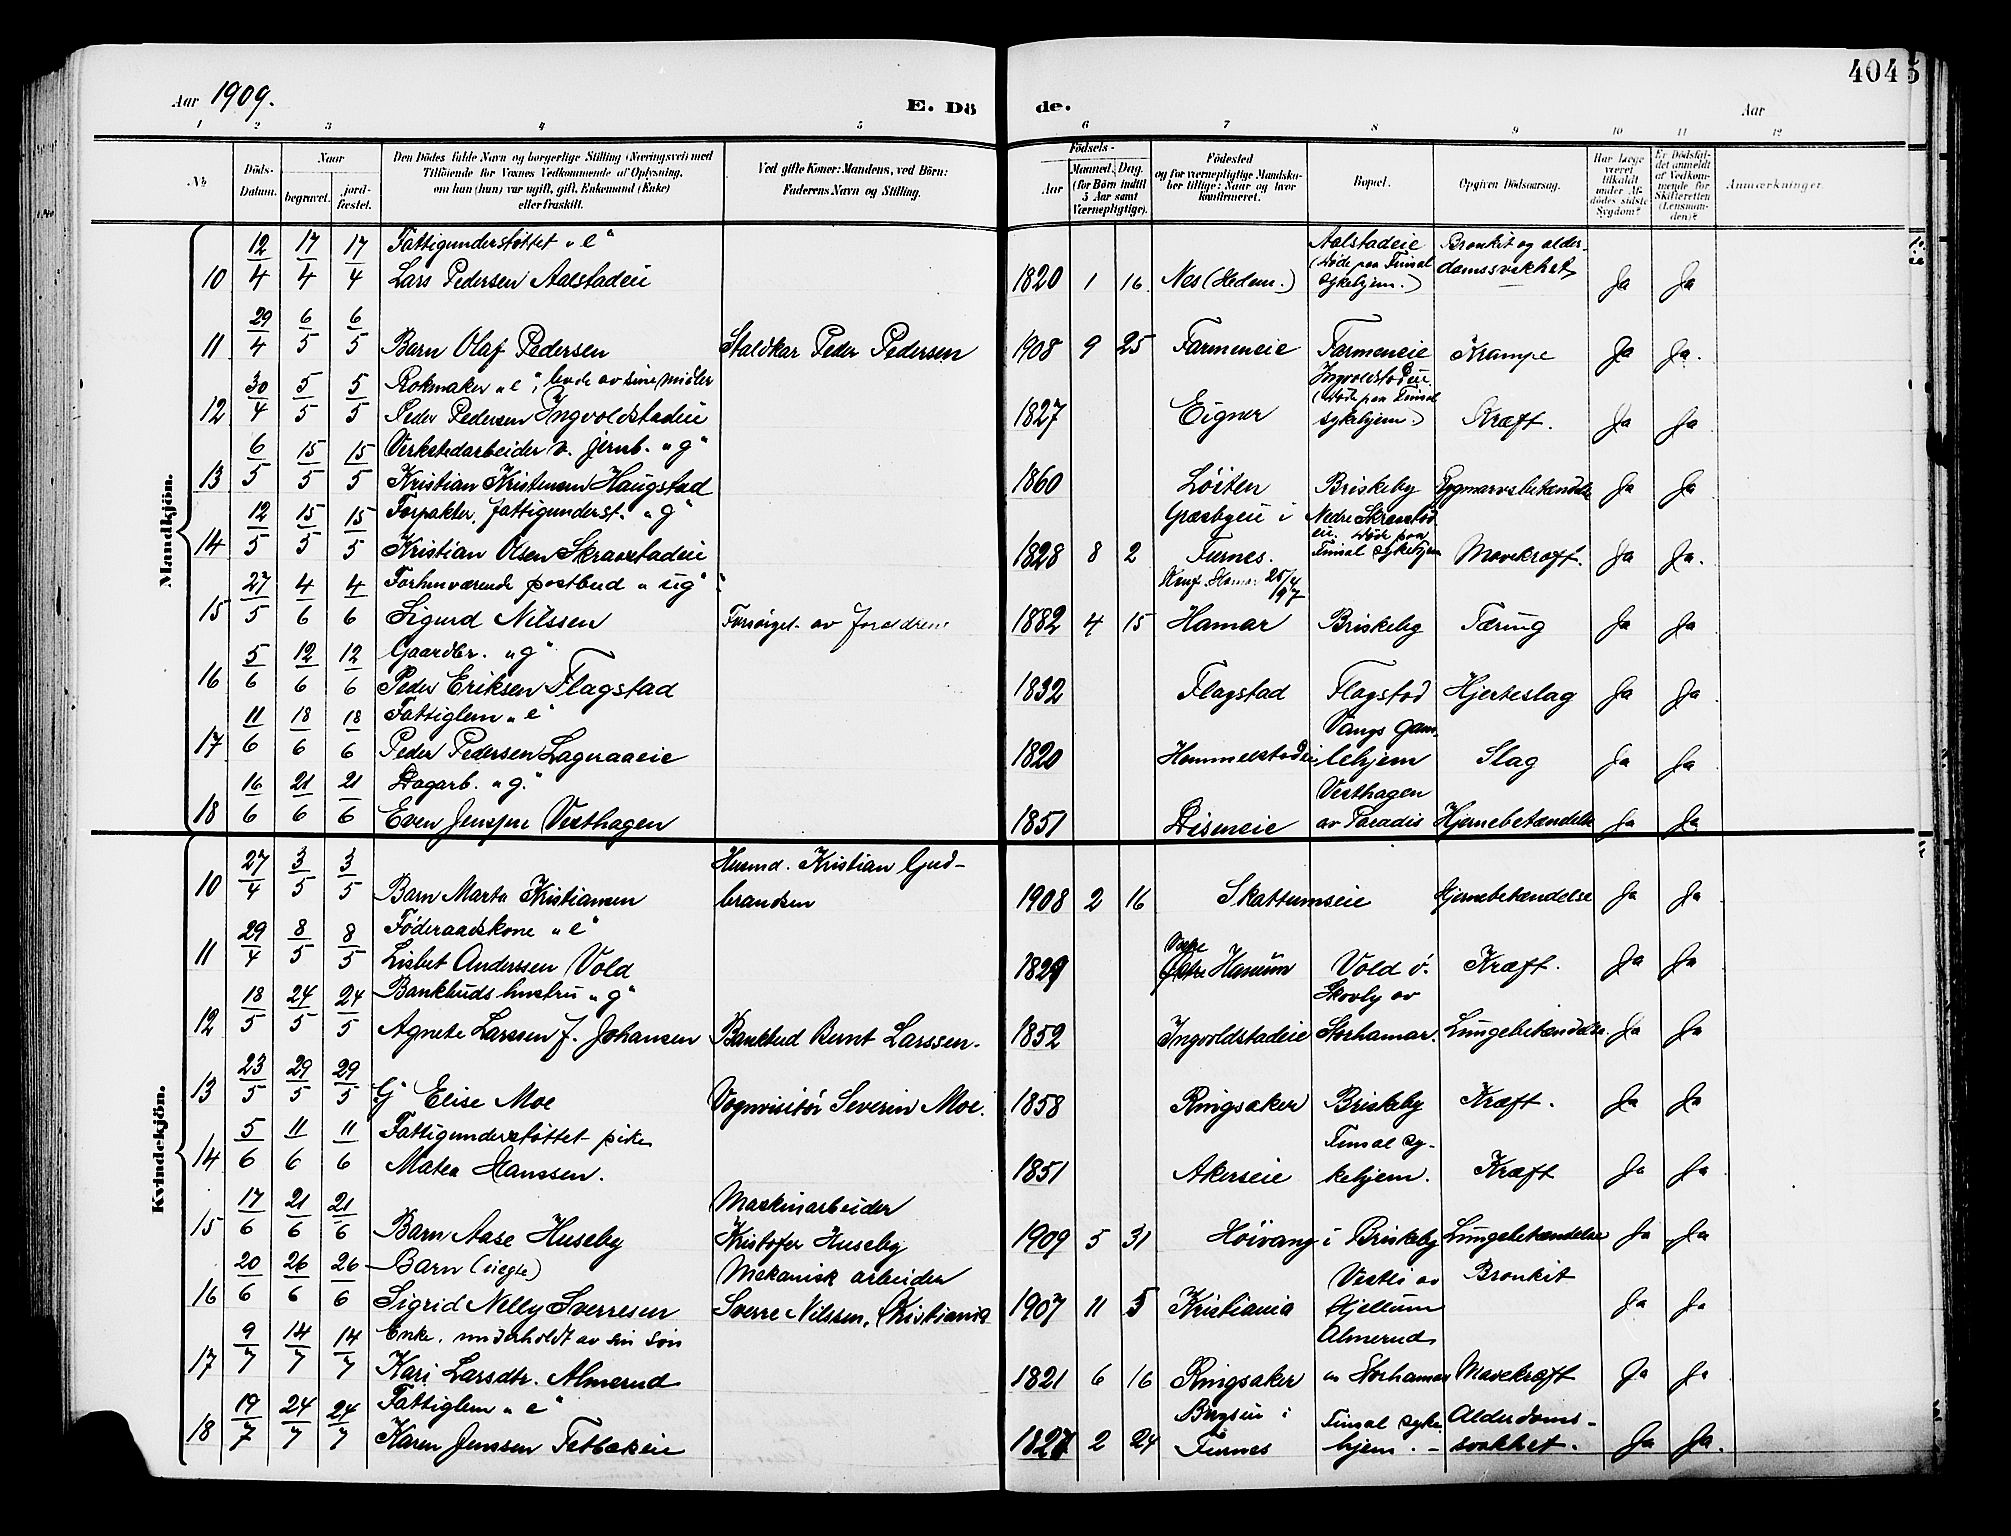 404 5
Aar 1909. E. Dö de. Aar
1 2 3 4 5 6 7 8 9 10 11 12
No Döds-Datum. Naar begravet. jord-fæstet. Den Dödes fulde Navn og borgerlige Stilling (Næringsvei) med Tilföiende for Voxnes Vedkommende af Oplysning, om han (hun) var ugift, gift, Enkemand (Enke) eller fraskilt. Ved gifte Koner: Mandens, ved Börn: Faderens Navn og Stilling. Födsels- Aar Maaned. Dag. (for Börn indtil 5 Aar samt Værnepligtige). Födested og for værnepligtige Mandskaber tillige: Naar og hvor konfirmeret. Bopæl. Opgiven Dödsaarsag. Har Læge været tilkaldt under Afdödes sidste Sygdom? Er Dödsfaldet anmeldt af Vedkommende for Skifteretten (Lensmanden)? Anmærkninger.
Mandkjön.
12 17 17 Fattigunderstøttet "e" Aalstadeie Bronkit og alder-
10 4 4 4 Lars Pedersen Aalstadeie 1820 1 16 Nes (Hedem.) (Døde paa Finsal sykehjem.) domssvakhet Ja Ja
29 6 6
11 4 5 5 Barn Olaf Pedersen Staldkar Peder Pedersen 1908 9 25 Farmeneie Farmeneie Krampe Ja Ja.
30 5 5 Rokmaker "e", levde av sine midler Ingvoldstadeie.
12 4 5 5 Peder Pedersen Ingvoldstadeie 1827 Eigner (Døde paa Finsal sykehjem.) Kræft. Ja Ja
6 15 15 Verkstedarbeider v. jernb. "g"
13 5 5 5 Kristian Kristensen Haugstad 1860 Løiten Briskeby Rygmarvsbetændelse Ja Ja
12 15 15 Forpakter, fattigunderst. "g" Græsbyeie i Nedre Skraastad
14 5 5 5 Kristian Olsen Skraastadeie 1828 8 2 Furnes. eie. Døde paa Finsal sykehjem Mavekræft. Ja Ja.
27 4 4 Forhenværende postbud "ug" Konf. Hamar 25/4 97
15 5 6 6 Sigurd Nilssen Forsørget av forældrene 1882 4 15 Hamar Briskeby Tæring Ja Ja
5 12 12 Gaardbr. "g"
16 6 6 6 Peder Eriksen Flagstad 1832 Flagstad Flagstad Hjerteslag Ja Ja
11 18 18 Fattiglem "e" Vangs gam-
17 6 6 6 Peder Pedersen Lagmaaeie 1820 Hommelstadeie lehjem Slag Ja Ja
16 21 21 Dagarb. "g." Vesthagen
18 6 6 6 Even Jenssen Vesthagen 1851 Diseneie av Paradis Hjernebetændelse Ja Ja
Kvindekjön.
27 3 3 Husmd. Kristian Gud-
10 4 5 5 Barn Marta Kristiansen brandsen 1908 2 16 Skattumseie Hjernebetændelse Ja Ja
29 8 8 Føderaadskone "e"
11 4 5 5 Lisbet Anderssen Vold 1829 Hanum Vold ø. Kræft. Ja Ja
18 24 24 Bankbuds hustru "g" Skovly av
12 5 5 5 Agnete Larssen f. Johansen Bankbud Bernt Larssen. 1852 Ingvoldstadeie Storhamar. Lungebetændelse. Ja Ja
23 29 29
13 5 5 5 Gj Elise Moe Vognvisitør Severin Moe. 1858 Ringsaker Briskeby Kræft. Ja Ja
5 11 11 Fattigunderstøttet pike Finsal sy-
14 6 6 6 Matea Hanssen. 1851 Akerseie kehjem. Kræft Ja Ja
17 21 21 Maskinarbeider
15 6 6 6 Barn Aase Huseby Kristofer Huseby 1909 5 31 Høivang i Briskeby Lungebetændelse Ja Ja
20 26 26 Barn (uegte) Mekanisk arbeider Vestli av Bronkit
16 6 6 6 Sigrid Nelly Sverresen Sverre Nilssen, Kristiania 1907 11 5 Kristiania Hjellum Ja Ja
9 14 14 Enke, underholdt av sin søn Almerud
17 7 7 7 Kari Larsdtr. Almerud 1821 6 16 Ringsaker av Storhamar Mavekræft Ja Ja
19 24 24 Fattiglem "e" Bergseie i Finsal syke- Alderdoms-
18 7 7 7 Karen Jenssen Torbakeie 1827 2 24 Furnes hjem. - svakhet. Ja Ja.